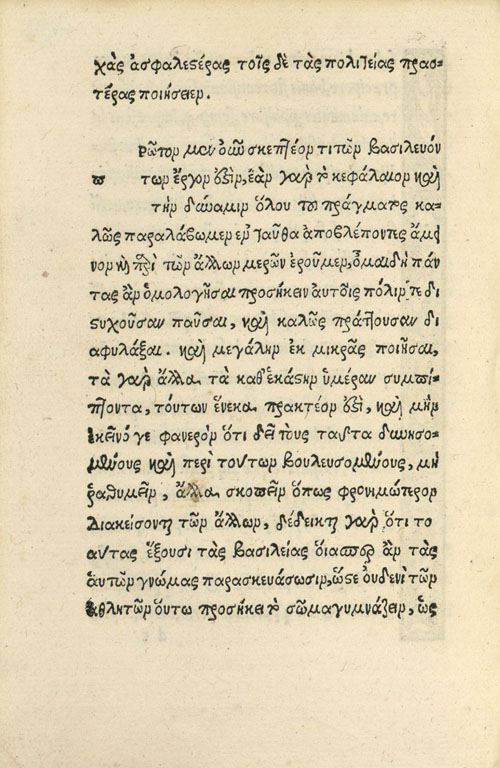 χὰς ἀσφαλεστέρας τοῖς δὲ τὰς πολιτείας πραο-
τέρας ποιήσειεν.
Ρῶτον μὲν οὖν σκεπτέον τι τῶν βασιλευόν
π των ἔργον ὅξιν, ἐὰν γὰρ τὸ κεφάλαιον καὶ
τὴν δύναμιν ὅλου τοῦ πράγματος κα-
λῶς παραλάβωμεν ἐνταῦθα ἀποβλέποντες ἄμει
νον καὶ περὶ τῶν ἄλλων μερῶν ἐροῦμεν, ὄμαι δὴ πάν
τας ἂν ὁμολογῆσαι προσήκειν αὐτοῖς πόλιν τε δυ
στυχοῦσαν παῦσαι, καὶ καλῶς πράττουσαν δι
αφυλάξαι. καὶ μεγάλην ἐκ μικρᾶς ποιῆσαι,
τὰ γὰρ ἄλλα τὰ καθ' ἑκάστην ἡμέραν συμπί-
πτοντα, τούτων ἕνεκα πρακτέον ἐστὶ, καὶ μὴν
ἐκεῖνό γε φανερὸν ὅτι δεῖ τοὺς ταῦτα δυνησο-
μένους καὶ περὶ τούτων βουλευσομένους, μὴ
ῥαθυμεῖν, ἀλλὰ σκοπεῖν ὅπως φρονιμώτερον
διακείσονται τῶν ἄλλων, δέδεικται γὰρ ὅτι το
αύτας ἕξουσι τὰς βασιλείας ὁίας περ ἂν τὰς
ἑαυτῶν γνώμας παρασκευάσωσιν, ὥστε ὀυδενὶ τῶν
ἀθλητῶν ὅυτω προσήκει τὸ σῶμα γυμνάζειν, ὡς